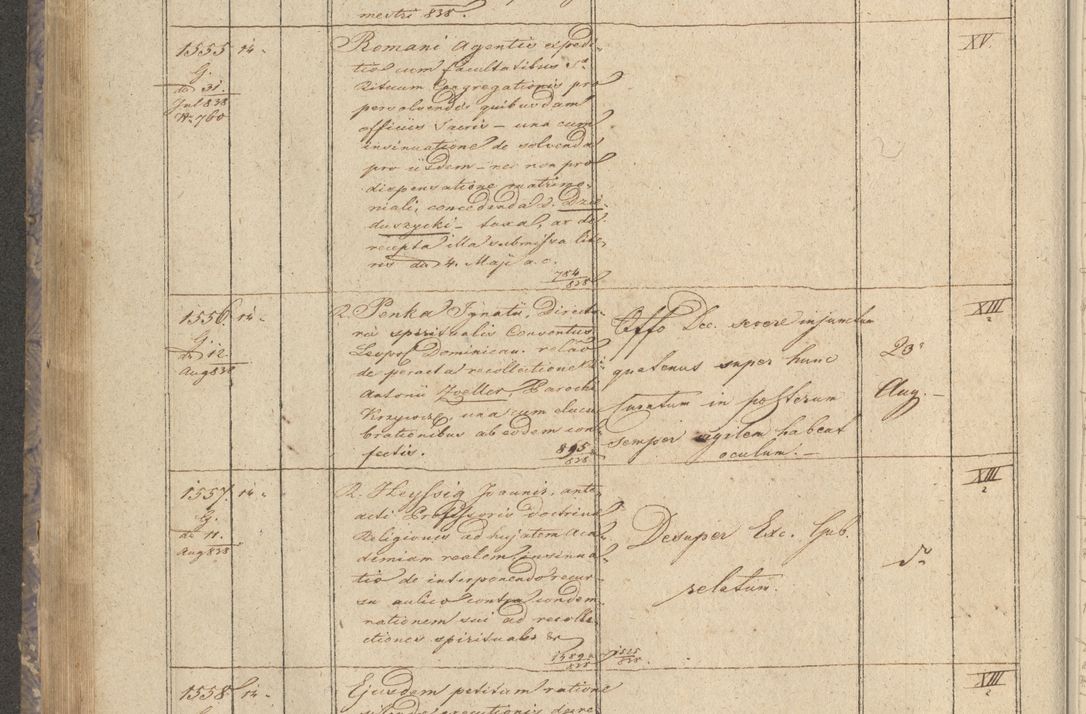 mestri 838.
1555 14.
G.
dd 31.
Jul 838
N. 760
Romani Agentis expedi-
tio cum facultatibus S.
Rituum Congregationis pro
persolvendis quibusdam
officiis Sacris – una cum
insinuatione de solvenda
pro iisdem – nec non pro
dispensatione matrimo-
niali, concedenda D. Dzie-
duszycki – taxa, ac de
recepta illa submissa lite-
ris dd 4. Maji a. c.
784/838
XV.
1556. 14.
G.
dd 12.
Aug 838
R. Penka Ignatii, Directo-
ris spiritualis Conventus
Leopol Dominican. relāo
de peracta recollectione
Antonii Zoeller, Parochi
Krzywcz, una cum elucu-
brationibus ab eodem con-
fectis.
895/838
Offo Dec. severe injunctum
quatenus super hunc
Curatum in posterum
semper vigilem habeat
oculum. –
23
Aug. –
XIII
2
1557. 14.
G.
dd 11.
Aug 838
R. Heyssig Joannis, ante-
acti Professoris doctrinæ
Religionis ad hujatem Aca-
demiam realem insinua-
tio de interponendo recur-
su aulico contra condem-
nationem sui ad recolle-
ctiones spirituales &c
Desuper Exc. Gub.
relatum.
XIII
2
1558. 14.
Ejusdem petitum ratione
XIII
2